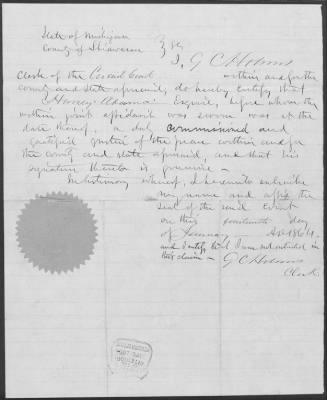 State of Michigan
County of Shiawassee } SS.
I, G C Holmes
Clerk of the Circuit Court within and for the
county and state aforesaid, do hereby certify that
Harvey Adams Esquire, before whom the
within joint affidavit was sworn was at the
date thereof, a duly commissioned and
qualified justice of the peace within and for
the county and state aforesaid, and that his
signature thereto is genuine -
In testimony whereof, I hereunto subscribe
my name and affix the
seal of the said Court
on this day
of January AD 1864.
and I certify that I am not interested in
this claim - G C Holmes
Clerk